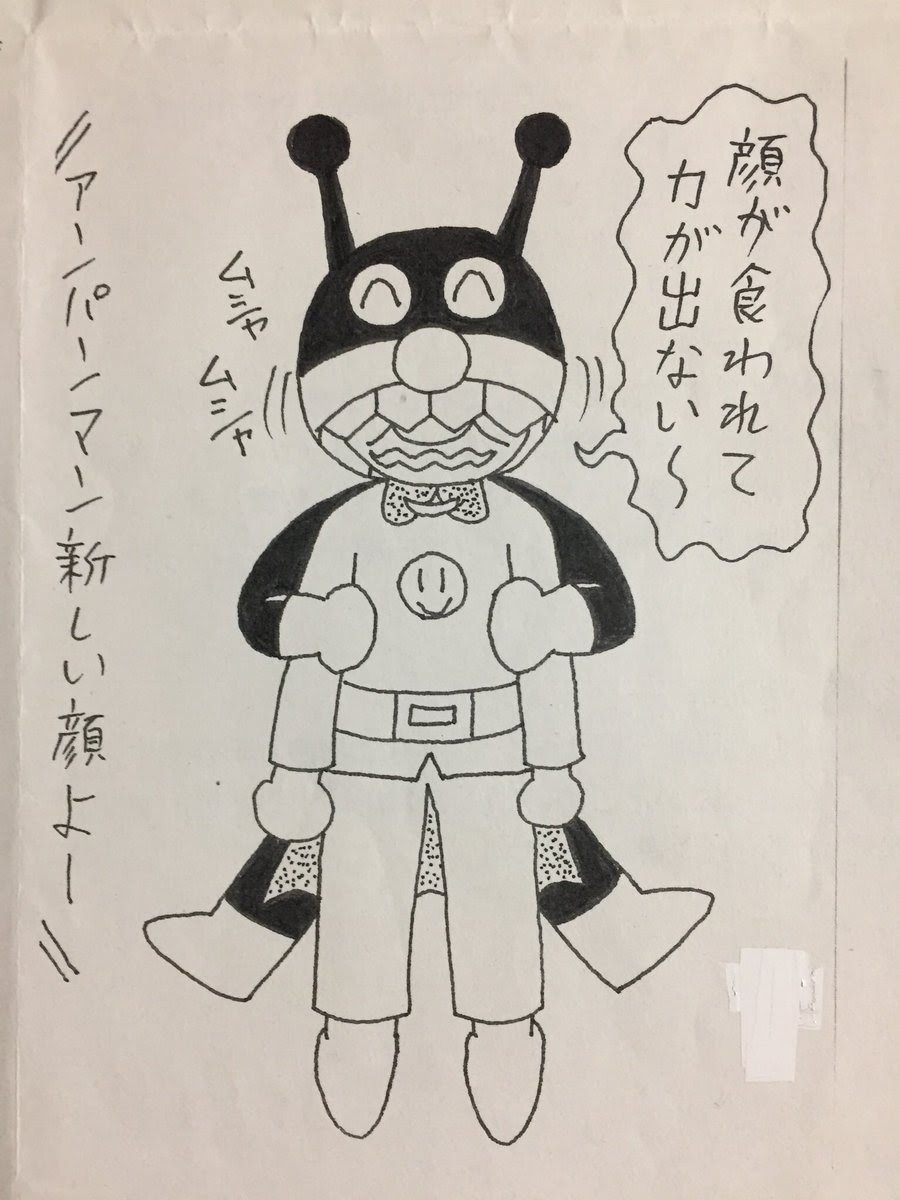 顔が食われて
力が出ない〜
ムシャ
ムシャ
アーンパーンマーン新しい顔よー